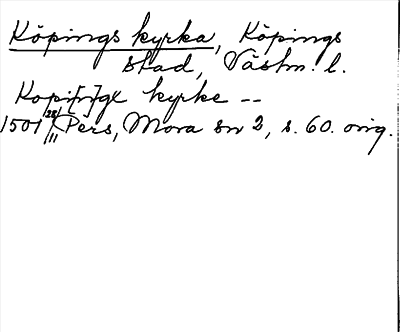 Köpings kyrka, Köpings
stad, Västm. l.
Kopi[n]gx kyrke --
1501 28/11 Pers, Mora sn 2, s. 60. orig.